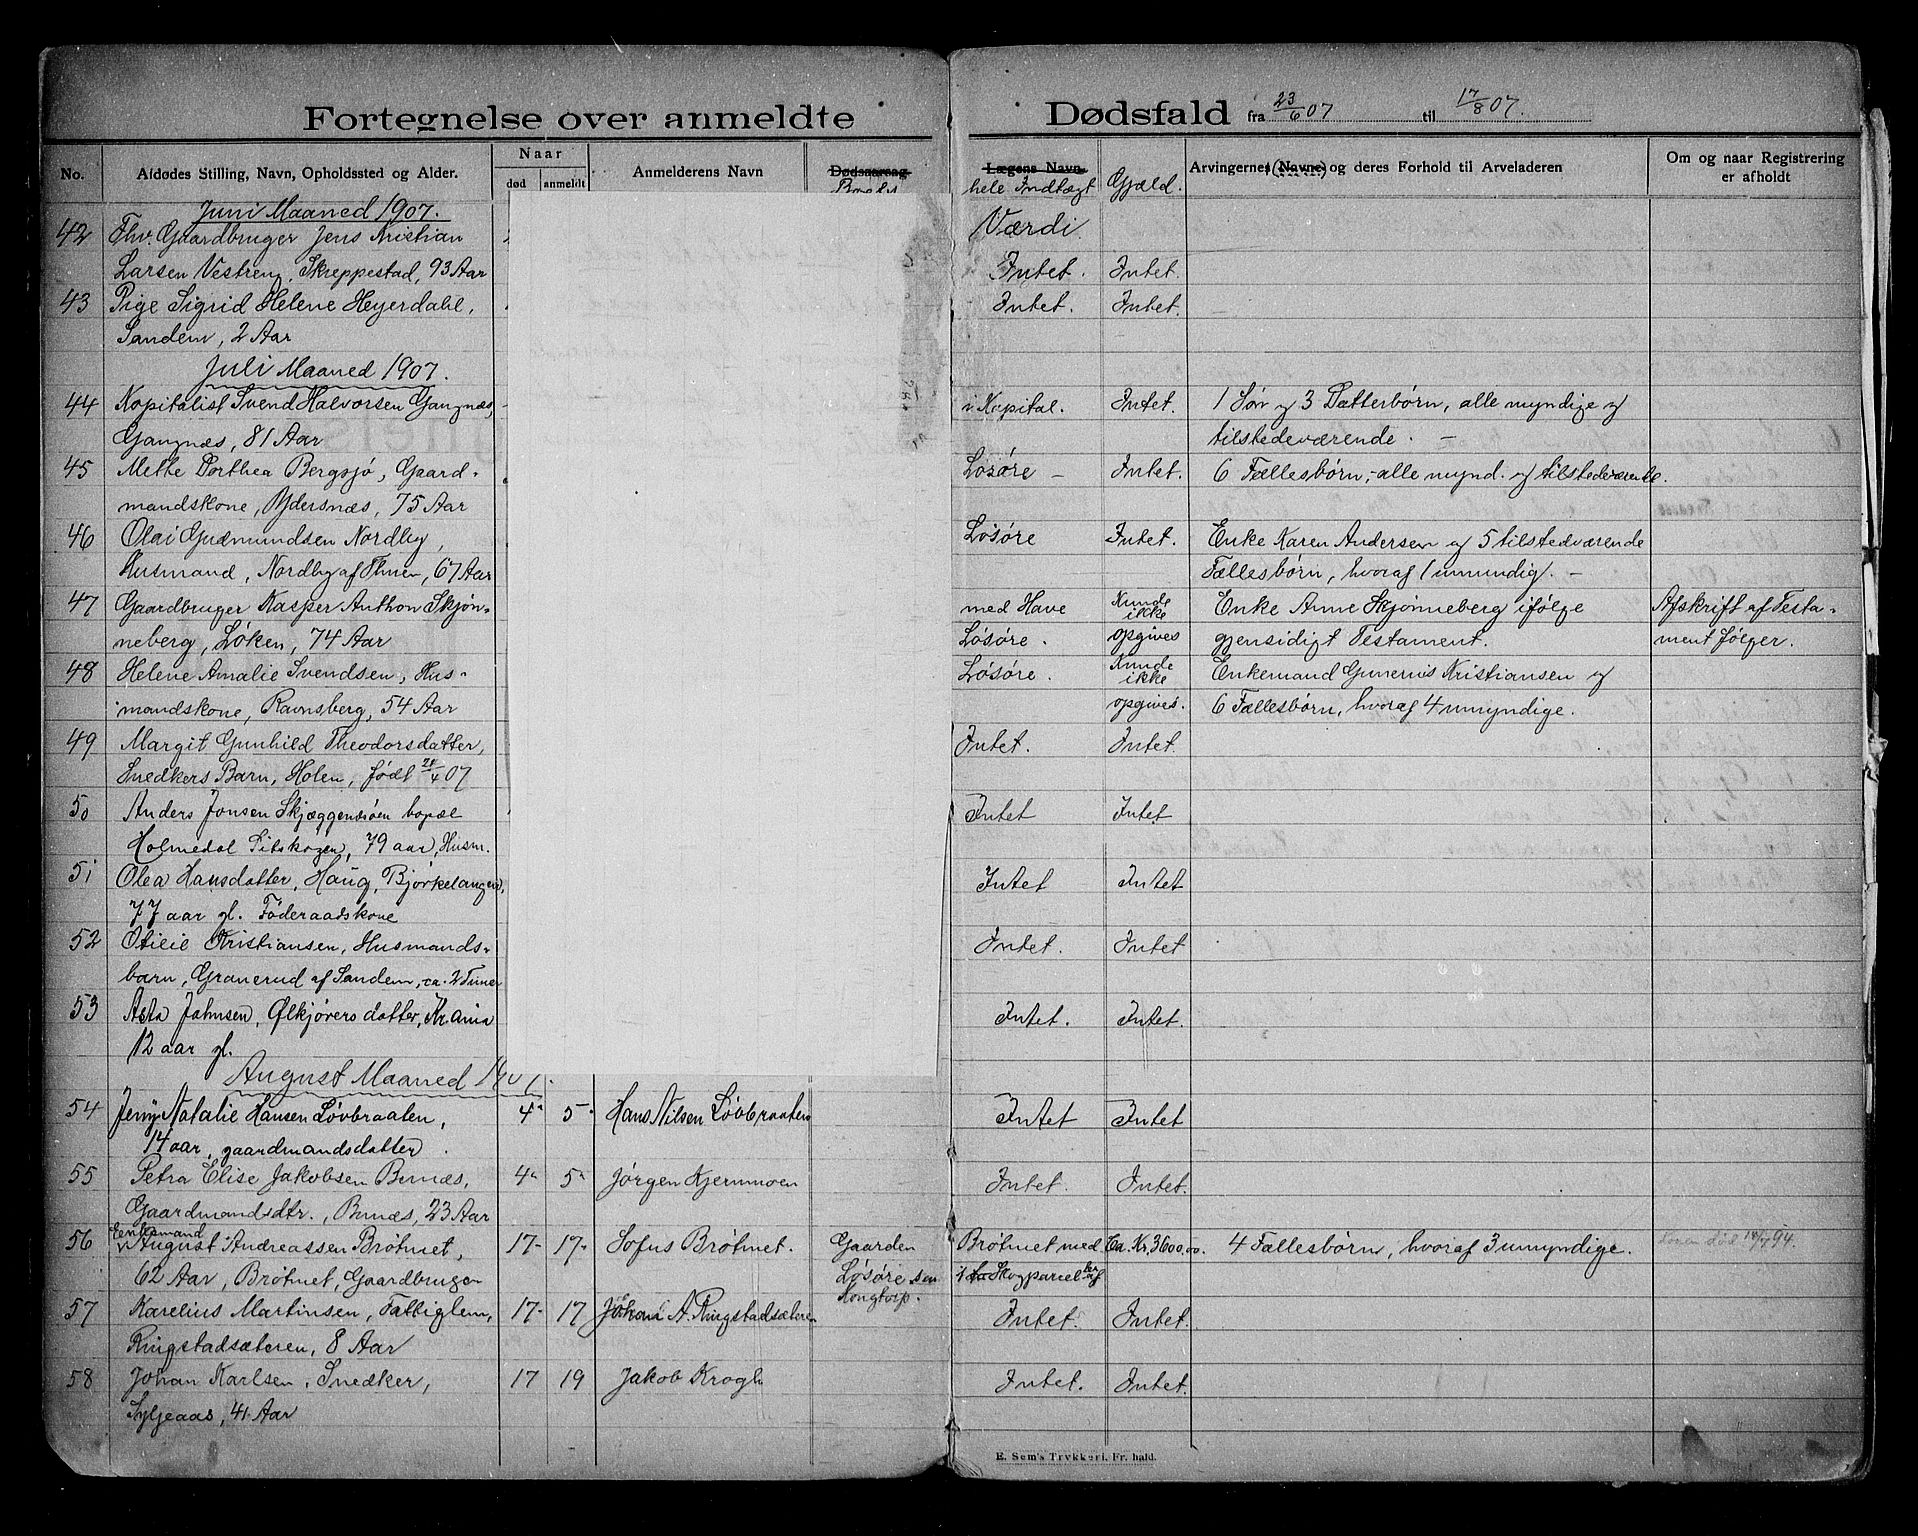 Fortegnelse over anmeldte Dødsfald fra 23/6 07 til 17/8 07.
No. Afdødes Stilling, Navn, Opholdssted og Alder. Naar død anmeldt Anmelderens Navn Dødsaarsag Lægens Navn hele Indtægt Gjæld. Arvingernes (Navne) og deres Forhold til Arveladeren Om og naar Registrering er afholdt
Juni Maaned 1907. Værdi
42 Fhv. Gaardbruger Jens Kristian
Larsen Vestreng, Skreppestad, 93 Aar Intet. Intet.
43 Pige Sigrid Helene Heyerdahl, Intet. Intet.
Sandem, 2 Aar
Juli Maaned 1907.
44 Kapitalist Svend Halvorsen Gangnæs, i Kapital. Intet. 1 Søn og 3 Datterbørn, alle myndige og
Gangnæs, 81 Aar tilstedeværende. -
45 Mette Dorthea Bergsjø, Gaard- Løsøre - Intet. 6 Fællesbørn, - alle mynd. og tilstedeværende.
mandskone, Ydersnæs, 75 Aar
46 Olai Gudmundsen Nordby, Løsøre Intet. Enke Karen Andersen og 5 tilstedværende
Husmand, Nordby af Thuen, 67 Aar Fællesbørn, hvoraf 1 umundig. -
47 Gaardbruger Kasper Anthon Skjøn- med Have Kunde ikke Enke Anne Skjønneberg ifølge Afskrift af Testa-
neberg, Løken, 74 Aar Løsøre. opgives gjensidigt Testament. ment følger.
48 Helene Amalie Svendsen, Hus- Løsøre. Kunde ikke Enkemand Gunerius Kristiansen og
mandskone, Ravnsberg, 54 Aar opgives. 6 Fællesbørn, hvoraf 4 umyndige.
49 Margit Gunhild Theodorsdatter, Intet. Intet.
Snedkers Barn, Holen, født /4 07
50 Anders Jonsen Skjæggenesøen bopæl Intet Intet
Holmedal Sitskogen, 79 aar, Husm.
51 Olea Hansdatter, Haug, Bjørkelangen, Intet Intet
77 aar gl. Føderaadskone
52 Otilie Kristiansen, Husmands- Intet. Intet
barn, Granerud af Sandem, ca. 2 Timer
53 Asta Johnsen, Ølkjørers datter, Kr.ania Intet. Intet.
12 aar gl.
August Maaned 1907.
54 Jenny Natalie Hansen Løvbraaten, 4 5 Hans Nilsen Løvbraaten Intet Intet
14 aar, gaardmandsdatter.
55 Petra Elise Jakobsen Bunæs, 4 5 Jørgen Kjernmoen Intet. Intet.
Gaardmandsdtr., Bunæs, 23 Aar
56 Enkemand August Andreassen Brøtmet, 17- 17- Sofus Brøtmet. Gaarden Brøtmet med Ca. Kr. 3600,00. 4 Fællesbørn, hvoraf 3 umyndige. Konen død 94.
62 Aar, Brøtmet, Gaardbruger Løsøre 1 Skogparcel
57 Karelius Martinsen, Fattiglem, 17- 17 A. Ringstadsæteren Intet. Intet.
Ringstadsæteren, 8 Aar
58 Johan Karlsen, Snedker, 17 19 Jakob Krogh Intet. Intet.
Syljeaas, 41 Aar
E. Sem's Trykkeri, Fr. hald.